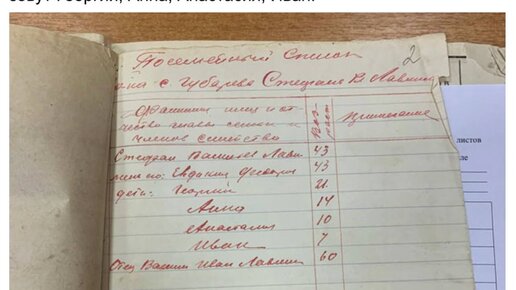 зовут Георгий, Анна, Анастасия, Иван.
2
Посемейный список
с Губарева Стефана В Лавина
Фамилия имя и от
чество главы семьи и
членов семейства
Воз
раст
Примечание
Стефан Василев Лави 43
жена его: Евдокия Федоров 43
дети: Георгий 21
Анна 14
Анастасия 10
Иван 7
Отец Васили Иван Лавин 60
листов